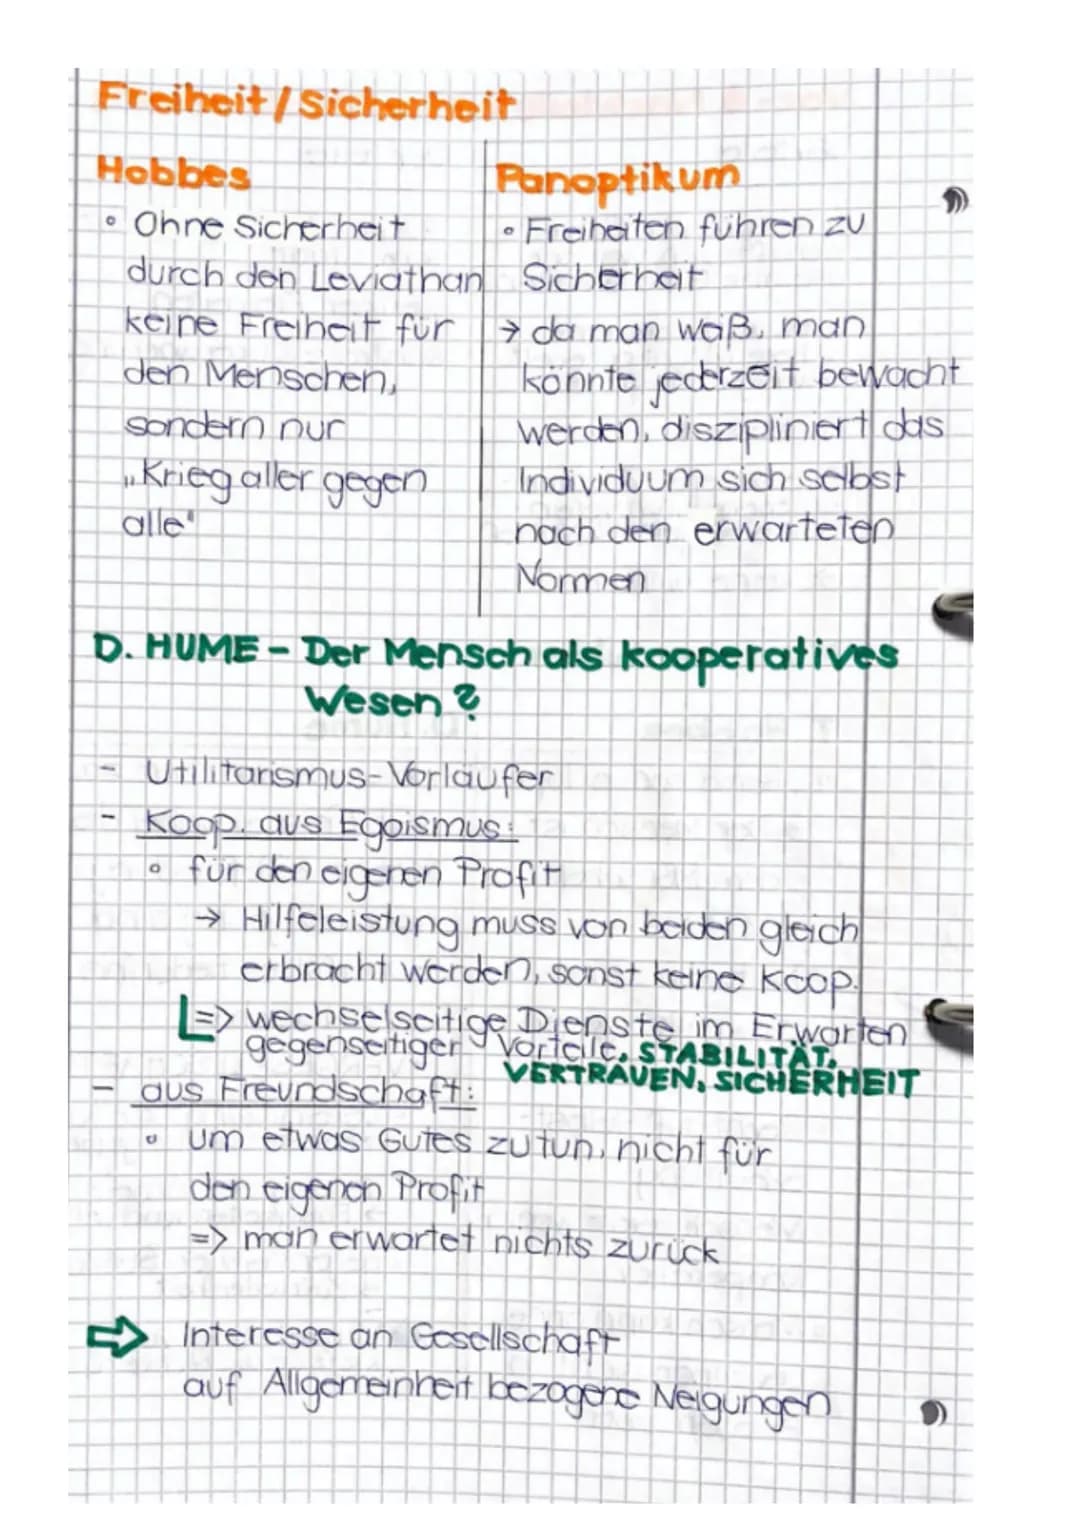 Freiheit/Sicherheit
Hobbes
• Ohne Sicherheit
durch den Leviathan
keine Freiheit für
den Menschen,
sondern nur
„Krieg aller gegen
alle"
Panoptikum
• Freiheiten führen zu
Sicherheit
→ da man weiß, man
könnte jederzeit bewacht
werden, diszipliniert das
Individuum sich selbst
nach den erwarteten
Normen
D. HUME - Der Mensch als kooperatives
Wesen?
- Utilitarismus-Vorläufer
- Koop. aus Egoismus:
• für den eigenen Profit
→ Hilfeleistung muss von beiden gleich
erbracht werden, sonst keine Koop.
=> wechselseitige Dienste im Erwarten
gegenseitiger Vorteile, STABILITÄT,
VERTRAUEN, SICHERHEIT
- aus Freundschaft:
• um etwas Gutes zu tun, nicht für
den eigenen Profit
=> man erwartet nichts zurück
⇒ Interesse an Gesellschaft
auf Allgemeinheit bezogene Neigungen